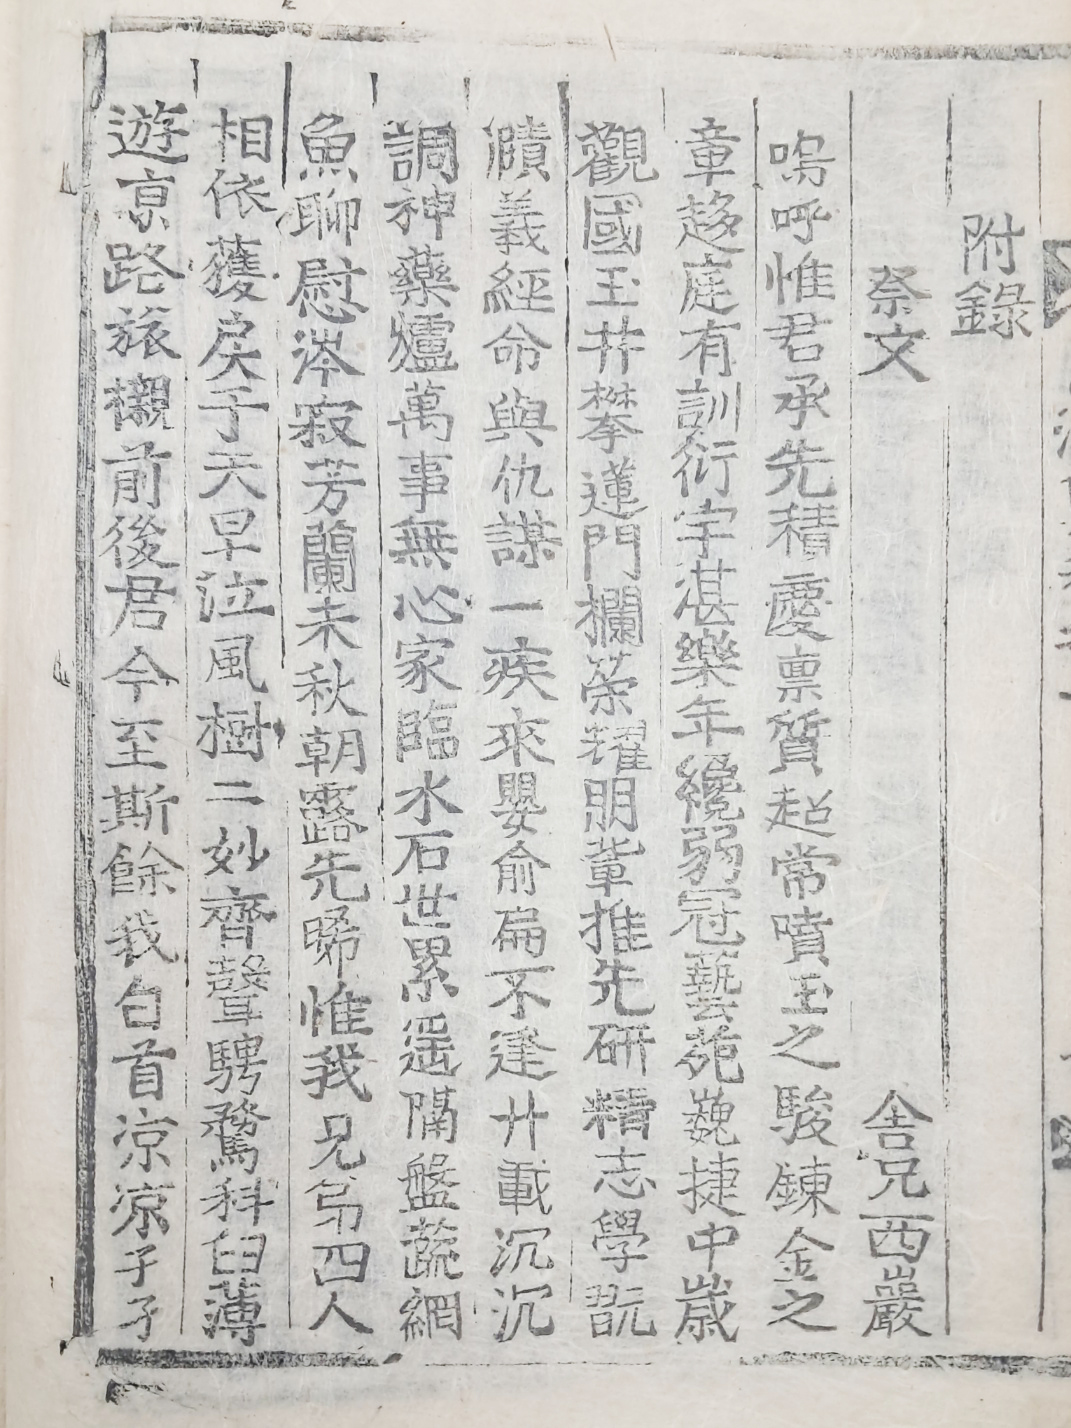 附錄
祭文 舍兄西巖
嗚呼惟君承先積慶禀質超常噴玉之駿鍊金之
章趍庭有訓衍宇湛樂年纔弱冠藝苑巍捷中歲
觀國玉井攀蓮門欄荣耀朋輩推先研精志學翫
賾義經命與仇謀一疾來嬰俞扁不逢廾載沉沉
調神藥爐萬事無心家臨水石世累逈隔盤蔬網
魚聊慰涔寂芳蘭未秋朝露先晞惟我兄弟四人
相依獲戾于天早泣風樹二妙齊聲騁騖科臼薄
遊京路旅櫬前後君今至斯餘我白首凉凉孑孑